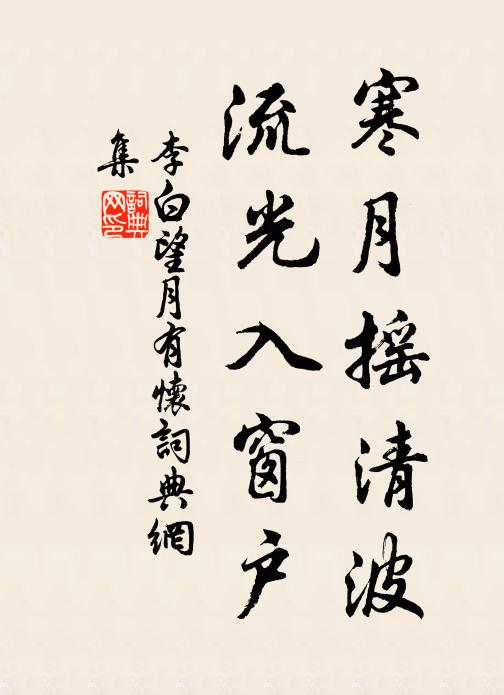 寒月摇清波
流光入窗户
李白望月有懷詞典網
集
詞典
网印